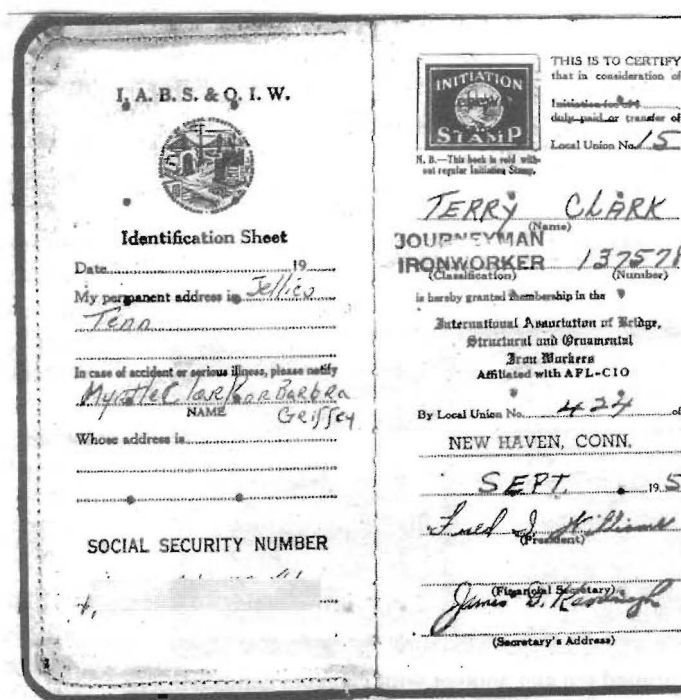 I. A. B. S. & O. I. W.
Identification Sheet
Date 19
My permanent address is Jellico
Tenn
In case of accident or serious illness, please notify
Myrtle Clark or Barbra
Griffey
NAME
Whose address is
SOCIAL SECURITY NUMBER
INITIATION
STAMP
N. B.—This book is void with-
out regular Initiation Stamp.
THIS IS TO CERTIFY
that in consideration of
Initiation fee of $
duly paid or transfer of
Local Union No. 15
TERRY CLARK
(Name)
JOURNEYMAN
IRONWORKER 137578
(Classification) (Number)
is hereby granted membership in the
International Association of Bridge,
Structural and Ornamental
Iron Workers
Affiliated with AFL-CIO
By Local Union No. 424 of
NEW HAVEN, CONN.
SEPT. 19 5
Fred J. Williams
(President)
(Financial Secretary)
James D. Kavanagh
(Secretary's Address)